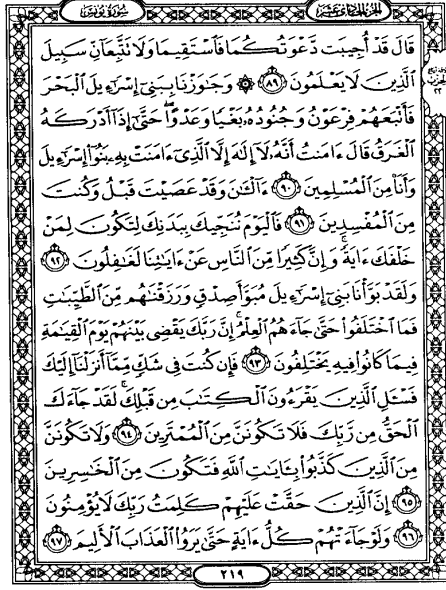 الجزء الحادي عشر
سورة يونس
قَالَ قَدْ أُجِيبَت دَّعْوَتُكُمَا فَٱسْتَقِيمَا وَلَا تَتَّبِعَآنِّ سَبِيلَ
ٱلَّذِينَ لَا يَعْلَمُونَ ﴿٨٩﴾ ۞ وَجَٰوَزْنَا بِبَنِىٓ إِسْرَٰٓءِيلَ ٱلْبَحْرَ
فَأَتْبَعَهُمْ فِرْعَوْنُ وَجُنُودُهُۥ بَغْيًا وَعَدْوًا ۖ حَتَّىٰٓ إِذَآ أَدْرَكَهُ
ٱلْغَرَقُ قَالَ ءَامَنتُ أَنَّهُۥ لَآ إِلَٰهَ إِلَّا ٱلَّذِىٓ ءَامَنَتْ بِهِۦ بَنُوٓا۟ إِسْرَٰٓءِيلَ
وَأَنَا۠ مِنَ ٱلْمُسْلِمِينَ ﴿٩٠﴾ ءَآلْـَٰٔنَ وَقَدْ عَصَيْتَ قَبْلُ وَكُنتَ
مِنَ ٱلْمُفْسِدِينَ ﴿٩١﴾ فَٱلْيَوْمَ نُنَجِّيكَ بِبَدَنِكَ لِتَكُونَ لِمَنْ
خَلْفَكَ ءَايَةً ۚ وَإِنَّ كَثِيرًا مِّنَ ٱلنَّاسِ عَنْ ءَايَٰتِنَا لَغَٰفِلُونَ ﴿٩٢﴾
وَلَقَدْ بَوَّأْنَا بَنِىٓ إِسْرَٰٓءِيلَ مُبَوَّأَ صِدْقٍ وَرَزَقْنَٰهُم مِّنَ ٱلطَّيِّبَٰتِ
فَمَا ٱخْتَلَفُوا۟ حَتَّىٰ جَآءَهُمُ ٱلْعِلْمُ ۚ إِنَّ رَبَّكَ يَقْضِى بَيْنَهُمْ يَوْمَ ٱلْقِيَٰمَةِ
فِيمَا كَانُوا۟ فِيهِ يَخْتَلِفُونَ ﴿٩٣﴾ فَإِن كُنتَ فِى شَكٍّ مِّمَّآ أَنزَلْنَآ إِلَيْكَ
فَسْـَٔلِ ٱلَّذِينَ يَقْرَءُونَ ٱلْكِتَٰبَ مِن قَبْلِكَ ۚ لَقَدْ جَآءَكَ
ٱلْحَقُّ مِن رَّبِّكَ فَلَا تَكُونَنَّ مِنَ ٱلْمُمْتَرِينَ ﴿٩٤﴾ وَلَا تَكُونَنَّ
مِنَ ٱلَّذِينَ كَذَّبُوا۟ بِـَٔايَٰتِ ٱللَّهِ فَتَكُونَ مِنَ ٱلْخَٰسِرِينَ
﴿٩٥﴾ إِنَّ ٱلَّذِينَ حَقَّتْ عَلَيْهِمْ كَلِمَتُ رَبِّكَ لَا يُؤْمِنُونَ
﴿٩٦﴾ وَلَوْ جَآءَتْهُمْ كُلُّ ءَايَةٍ حَتَّىٰ يَرَوُا۟ ٱلْعَذَابَ ٱلْأَلِيمَ ﴿٩٧﴾
٢١٩